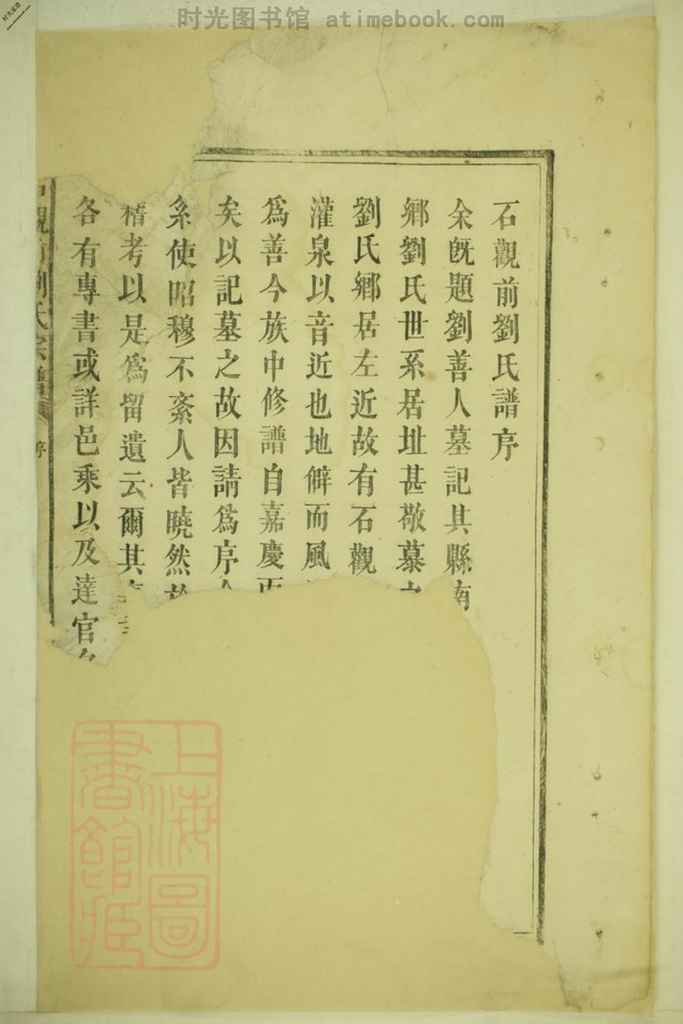 时光图书馆 atimebook.com
石觀前劉氏譜序
余旣題劉善人墓記其縣南
鄉劉氏世系居址甚敬慕
劉氏鄉居左近故有石觀
灌泉以音近也地僻而風
爲善今族中修譜自嘉慶
矣以記墓之故因請爲序
系使昭穆不紊人皆曉然於
稽考以是爲留遺云爾其
各有專書或詳邑乘以及達官
觀前劉氏宗譜 序
上海圖書館藏